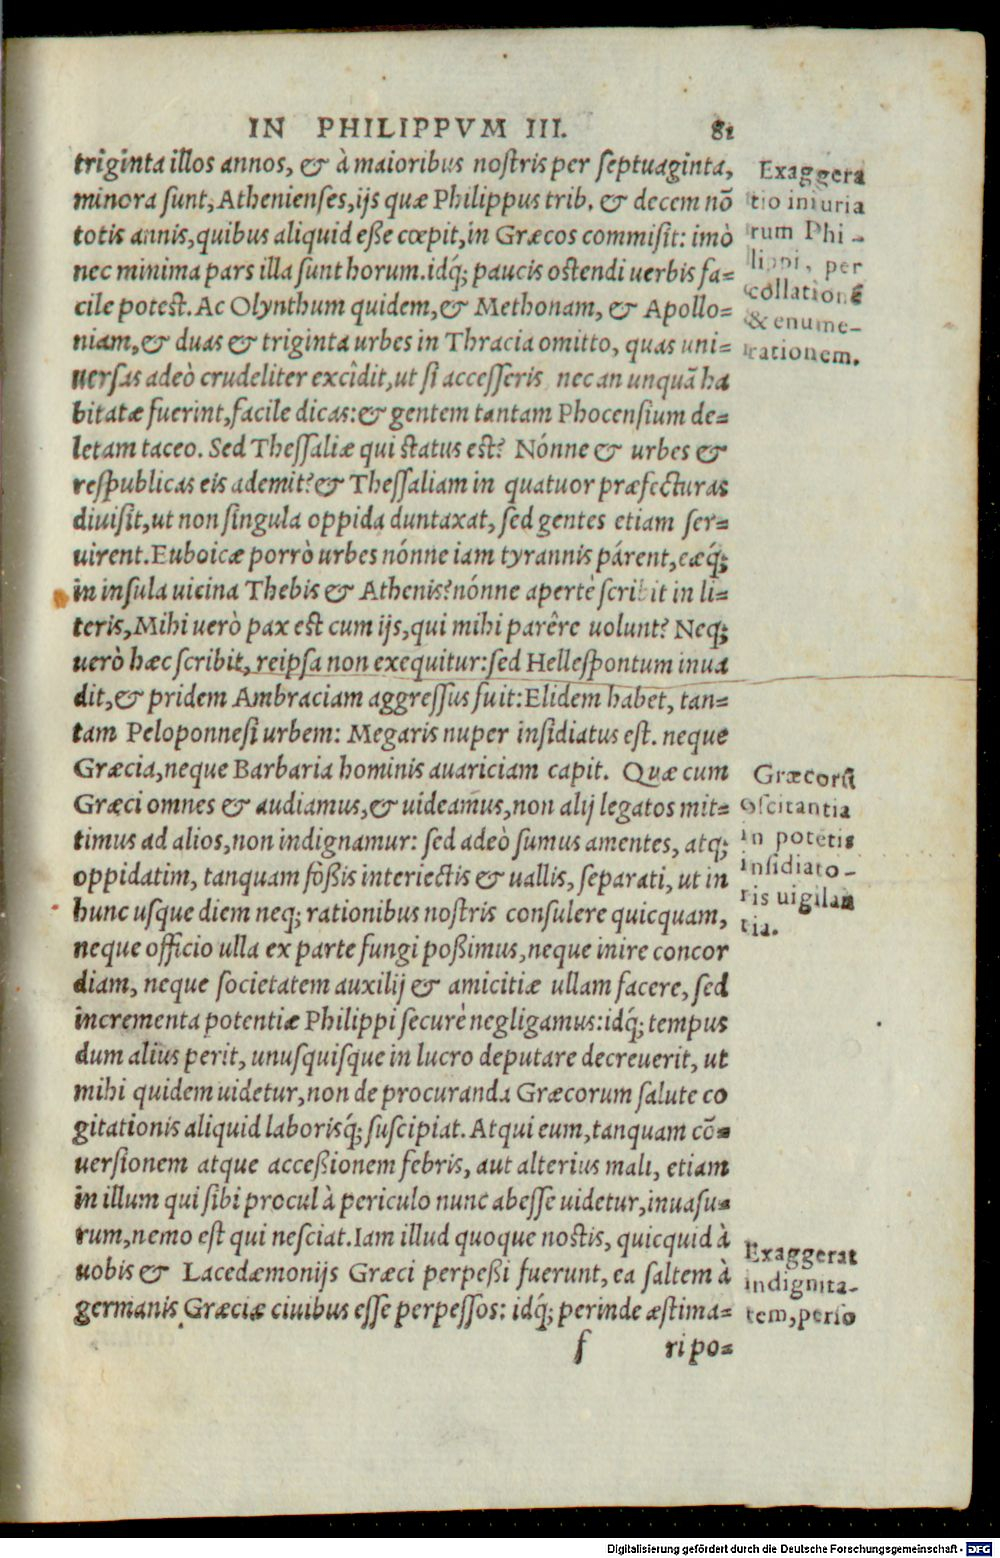 IN PHILIPPVM III. 81
triginta illos annos, & à maioribus nostris per septuaginta,
minora sunt, Athenienses, ijs quæ Philippus trib. & decem nō
totis annis, quibus aliquid eße cœpit, in Græcos commisit: imò
nec minima pars illa sunt horum. idq́; paucis ostendi uerbis fa=
cile potest. Ac Olynthum quidem, & Methonam, & Apollo=
niam, & duas & triginta urbes in Thracia omitto, quas uni=
uersas adeò crudeliter excîdit, ut si accesseris nec an unquā ha
bitatæ fuerint, facile dicas: & gentem tantam Phocensium de=
letam taceo. Sed Thessaliæ qui status est? Nónne & urbes &
respublicas eis ademit? & Thessaliam in quatuor præfecturas
diuisit, ut non singula oppida duntaxat, sed gentes etiam ser=
uirent. Euboicæ porrò urbes nónne iam tyrannis párent, eæq́;
in insula uicina Thebis & Athenis? nónne apertè scribit in li=
teris, Mihi uerò pax est cum ijs, qui mihi parêre uolunt? Neq;
uerò hæc scribit, reipsa non exequitur: sed Hellespontum inua
dit, & pridem Ambraciam aggressus fuit: Elidem habet, tan=
tam Peloponnesi urbem: Megaris nuper insidiatus est. neque
Græcia, neque Barbaria hominis auariciam capit. Quæ cum
Græci omnes & audiamus, & uideamus, non alij legatos mit=
timus ad alios, non indignamur: sed adeò sumus amentes, atq;
oppidatim, tanquam foßis interiectis & uallis, separati, ut in
hunc usque diem neq; rationibus nostris consulere quicquam,
neque officio ulla ex parte fungi poßimus, neque inire concor
diam, neque societatem auxilij & amicitiæ ullam facere, sed
incrementa potentiæ Philippi securè negligamus: idq́; tempus
dum alius perit, unusquisque in lucro deputare decreuerit, ut
mihi quidem uidetur, non de procuranda Græcorum salute co
gitationis aliquid laborisq́; suscipiat. Atqui eum, tanquam cō=
uersionem atque acceßionem febris, aut alterius mali, etiam
in illum qui sibi procul à periculo nunc abesse uidetur, inuasu=
rum, nemo est qui nesciat. Iam illud quoque nostis, quicquid à
uobis & Lacedæmonijs Græci perpeßi fuerunt, ea saltem à
germanis Græciæ ciuibus esse perpessos: idq́; perinde æstima=
f ri po=
Exaggera
tio iniuria
rum Phi-
lippi, per
collationē
& enume-
rationem.
Græcorū
oscitantia
in potētis
insidiato-
ris uigilan
tia.
Exaggerat
indignita-
tem, perso
Digitalisierung gefördert durch die Deutsche Forschungsgemeinschaft - DFG